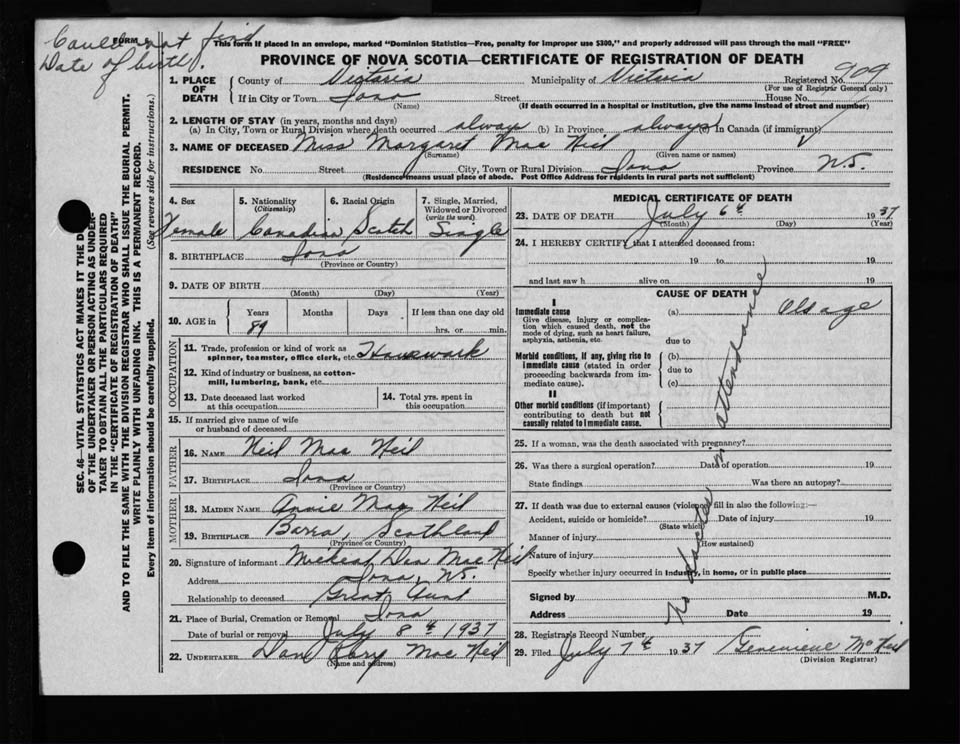 Could not find
Date of birth.
FORM
This form if placed in an envelope, marked "Dominion Statistics—Free, penalty for improper use $300," and properly addressed will pass through the mail "FREE"
PROVINCE OF NOVA SCOTIA—CERTIFICATE OF REGISTRATION OF DEATH
1. PLACE OF DEATH County of Victoria Municipality of Victoria Registered No. 909
(For use of Registrar General only)
If in City or Town Iona Street House No.
(Name) (If death occurred in a hospital or institution, give the name instead of street and number)
2. LENGTH OF STAY (in years, months and days)
(a) In City, Town or Rural Division where death occurred always (b) In Province always (c) In Canada (if immigrant)
3. NAME OF DECEASED Miss Margaret Mac Neil
(Surname) (Given name or names)
RESIDENCE No. Street City, Town or Rural Division Iona Province N.S.
(Residence means usual place of abode. Post Office Address for residents in rural parts not sufficient)
4. Sex Female
5. Nationality (Citizenship) Canadian
6. Racial Origin Scotch
7. Single, Married, Widowed or Divorced (write the word) Single
8. BIRTHPLACE Iona
(Province or Country)
9. DATE OF BIRTH
(Month) (Day) (Year)
10. AGE in Years Months Days If less than one day old
89 hrs. or min.
OCCUPATION
11. Trade, profession or kind of work as spinner, teamster, office clerk, etc. Housework
12. Kind of industry or business, as cotton-mill, lumbering, bank, etc.
13. Date deceased last worked at this occupation
14. Total yrs. spent in this occupation
15. If married give name of wife or husband of deceased
FATHER
16. NAME Neil Mac Neil
17. BIRTHPLACE Iona
(Province or Country)
MOTHER
18. MAIDEN NAME Annie Mac Neil
19. BIRTHPLACE Barra, Scothland
(Province or Country)
20. Signature of informant Micheal Dan Mac Neil
Address Iona, N.S.
Relationship to deceased Great Aunt
21. Place of Burial, Cremation or Removal Iona
Date of burial or removal July 8th 1937
22. UNDERTAKER Dan Rory Mac Neil
(Name and address)
MEDICAL CERTIFICATE OF DEATH
23. DATE OF DEATH July 6th 1937
(Month) (Day) (Year)
24. I HEREBY CERTIFY that I attended deceased from:
19 to 19
and last saw h alive on 19
CAUSE OF DEATH
I
Immediate cause (a) Old age
Give disease, injury or complication which caused death, not the mode of dying, such as heart failure, asphyxia, asthenia, etc.
due to
Morbid conditions, if any, giving rise to immediate cause (stated in order proceeding backwards from immediate cause).
(b)
due to
(c)
II
Other morbid conditions (if important) contributing to death but not causally related to immediate cause.
25. If a woman, was the death associated with pregnancy?
26. Was there a surgical operation? Date of operation 19
State findings Was there an autopsy?
27. If death was due to external causes (violence) fill in also the following:—
Accident, suicide or homicide? Date of injury 19
(State which)
Manner of injury
(How sustained)
Nature of injury
Specify whether injury occurred in industry, in home, or in public place
Signed by M.D.
Address Date 19
No doctor in attendance
28. Registrar's Record Number
29. Filed July 7th 1937 Genevieve McNeil
(Division Registrar)
SEC. 46—VITAL STATISTICS ACT MAKES IT THE
OF THE UNDERTAKER OR PERSON ACTING AS UNDER-
TAKER TO OBTAIN ALL THE PARTICULARS REQUIRED
IN THE "CERTIFICATE OF REGISTRATION OF DEATH"
AND TO FILE THE SAME WITH THE DIVISION REGISTRAR WHO SHALL ISSUE THE BURIAL PERMIT.
WRITE PLAINLY WITH UNFADING INK. THIS IS A PERMANENT RECORD.
Every item of information should be carefully supplied. (See reverse side for instructions.)